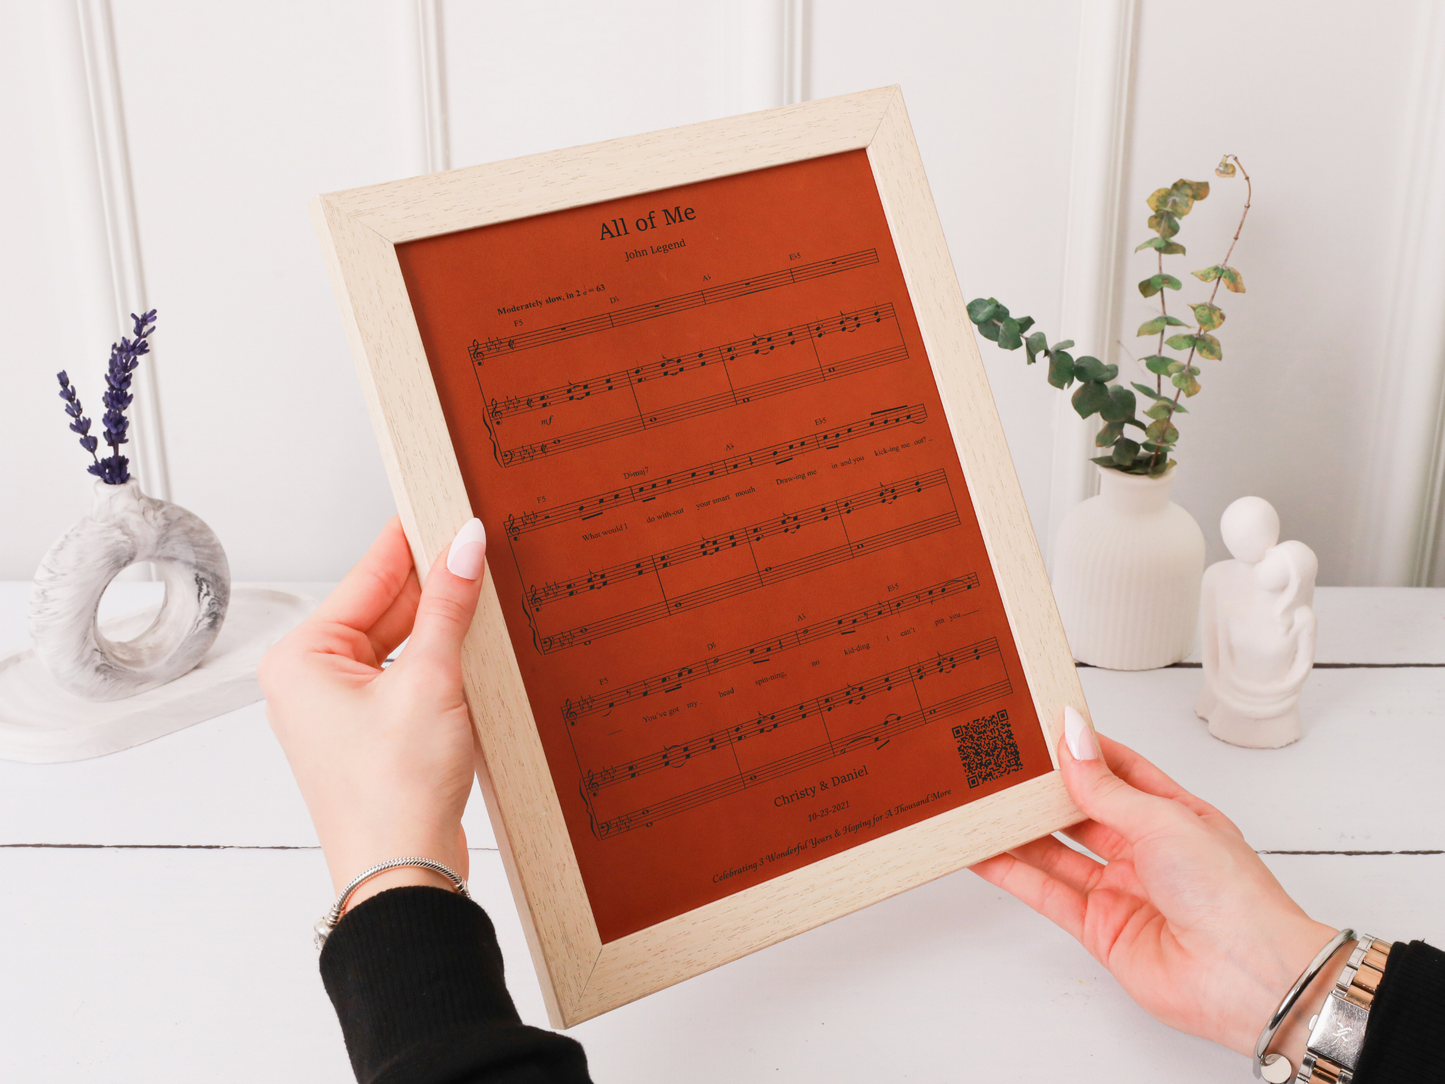 All of Me
John Legend
Moderately slow, in 2 𝅗𝅥 = 63
F5 D♭ A♭ E♭5
mf
F5 D♭maj7 A♭ E♭5
What would I do with-out your smart mouth Draw-ing me in and you kick-ing me out?
F5 D♭ A♭ E♭5
You've got my head spin-ning, no kid-ding I can't pin you
Christy & Daniel
10-23-2021
Celebrating 3 Wonderful Years & Hoping for A Thousand More